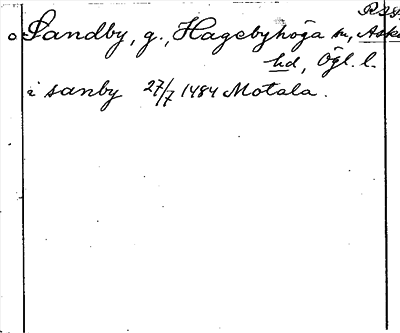 Sandby, g., Hagebyhöga sn, Aska
hd, Ögl. l.
i sanby 27/7 1484 Motala.